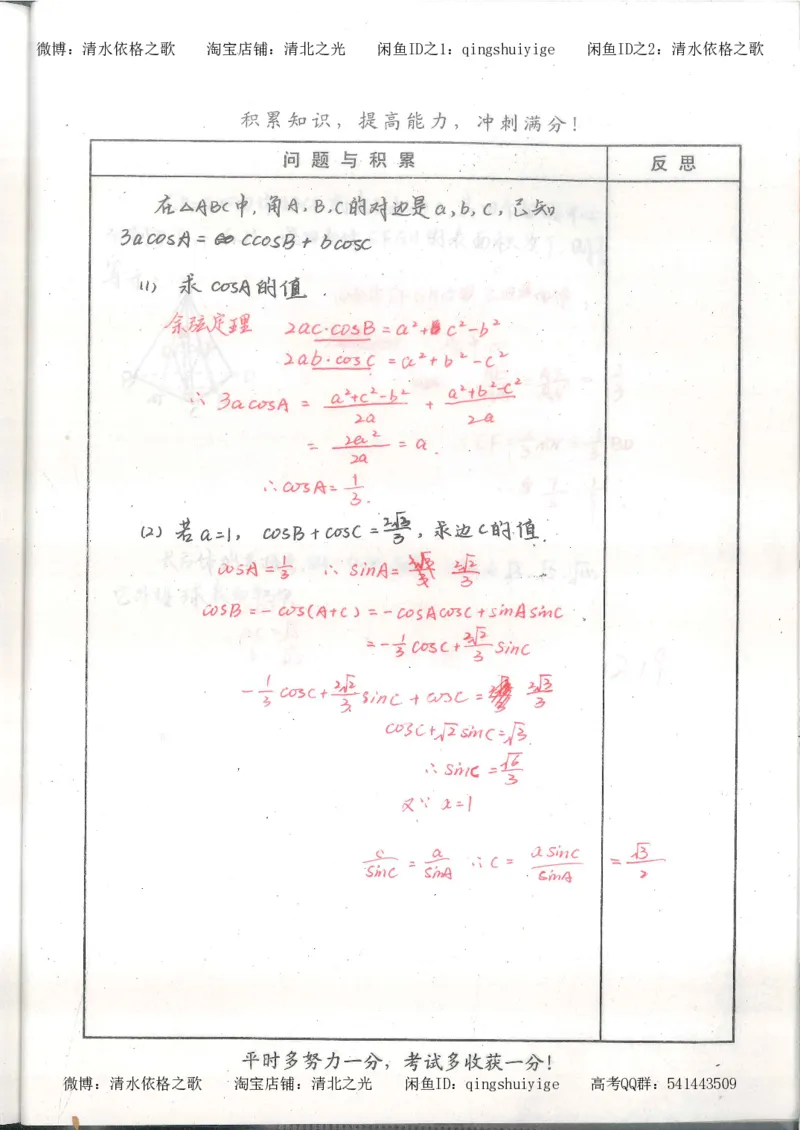 微博：清水依格之歌 淘宝店铺：清北之光 闲鱼ID之1：qingshuiyige 闲鱼ID之2：清水依格之歌
积累知识，提高能力，冲刺满分！
问题与积累 反思
在△ABC中，角A，B，C的对边是a，b，c，已知
3acosA= ccosB+bcosC
(1) 求cosA的值．
余弦定理 2ac·cosB=a²+c²-b²
2ab·cosC=a²+b²-c²
∴3acosA=(a²+c²-b²)/2a+(a²+b²-c²)/2a
=2a²/2a=a．
∴cosA=1/3．
(2) 若a=1，cosB+cosC=2√3/3，求边C的值．
cosA=1/3 ∴sinA=2√2/3
cosB=-cos(A+C)=-cosAcosC+sinAsinC
=-1/3cosC+2√2/3sinC
-1/3cosC+2√2/3sinC+cosC=2√3/3
cosC+√2sinC=√3
∴sinC=√6/3
又∵a=1
c/sinC=a/sinA ∴C=asinC/sinA =√3/2
平时多努力一分，考试多收获一分！
微博：清水依格之歌 淘宝店铺：清北之光 闲鱼ID：qingshuiyige 高考QQ群：541443509